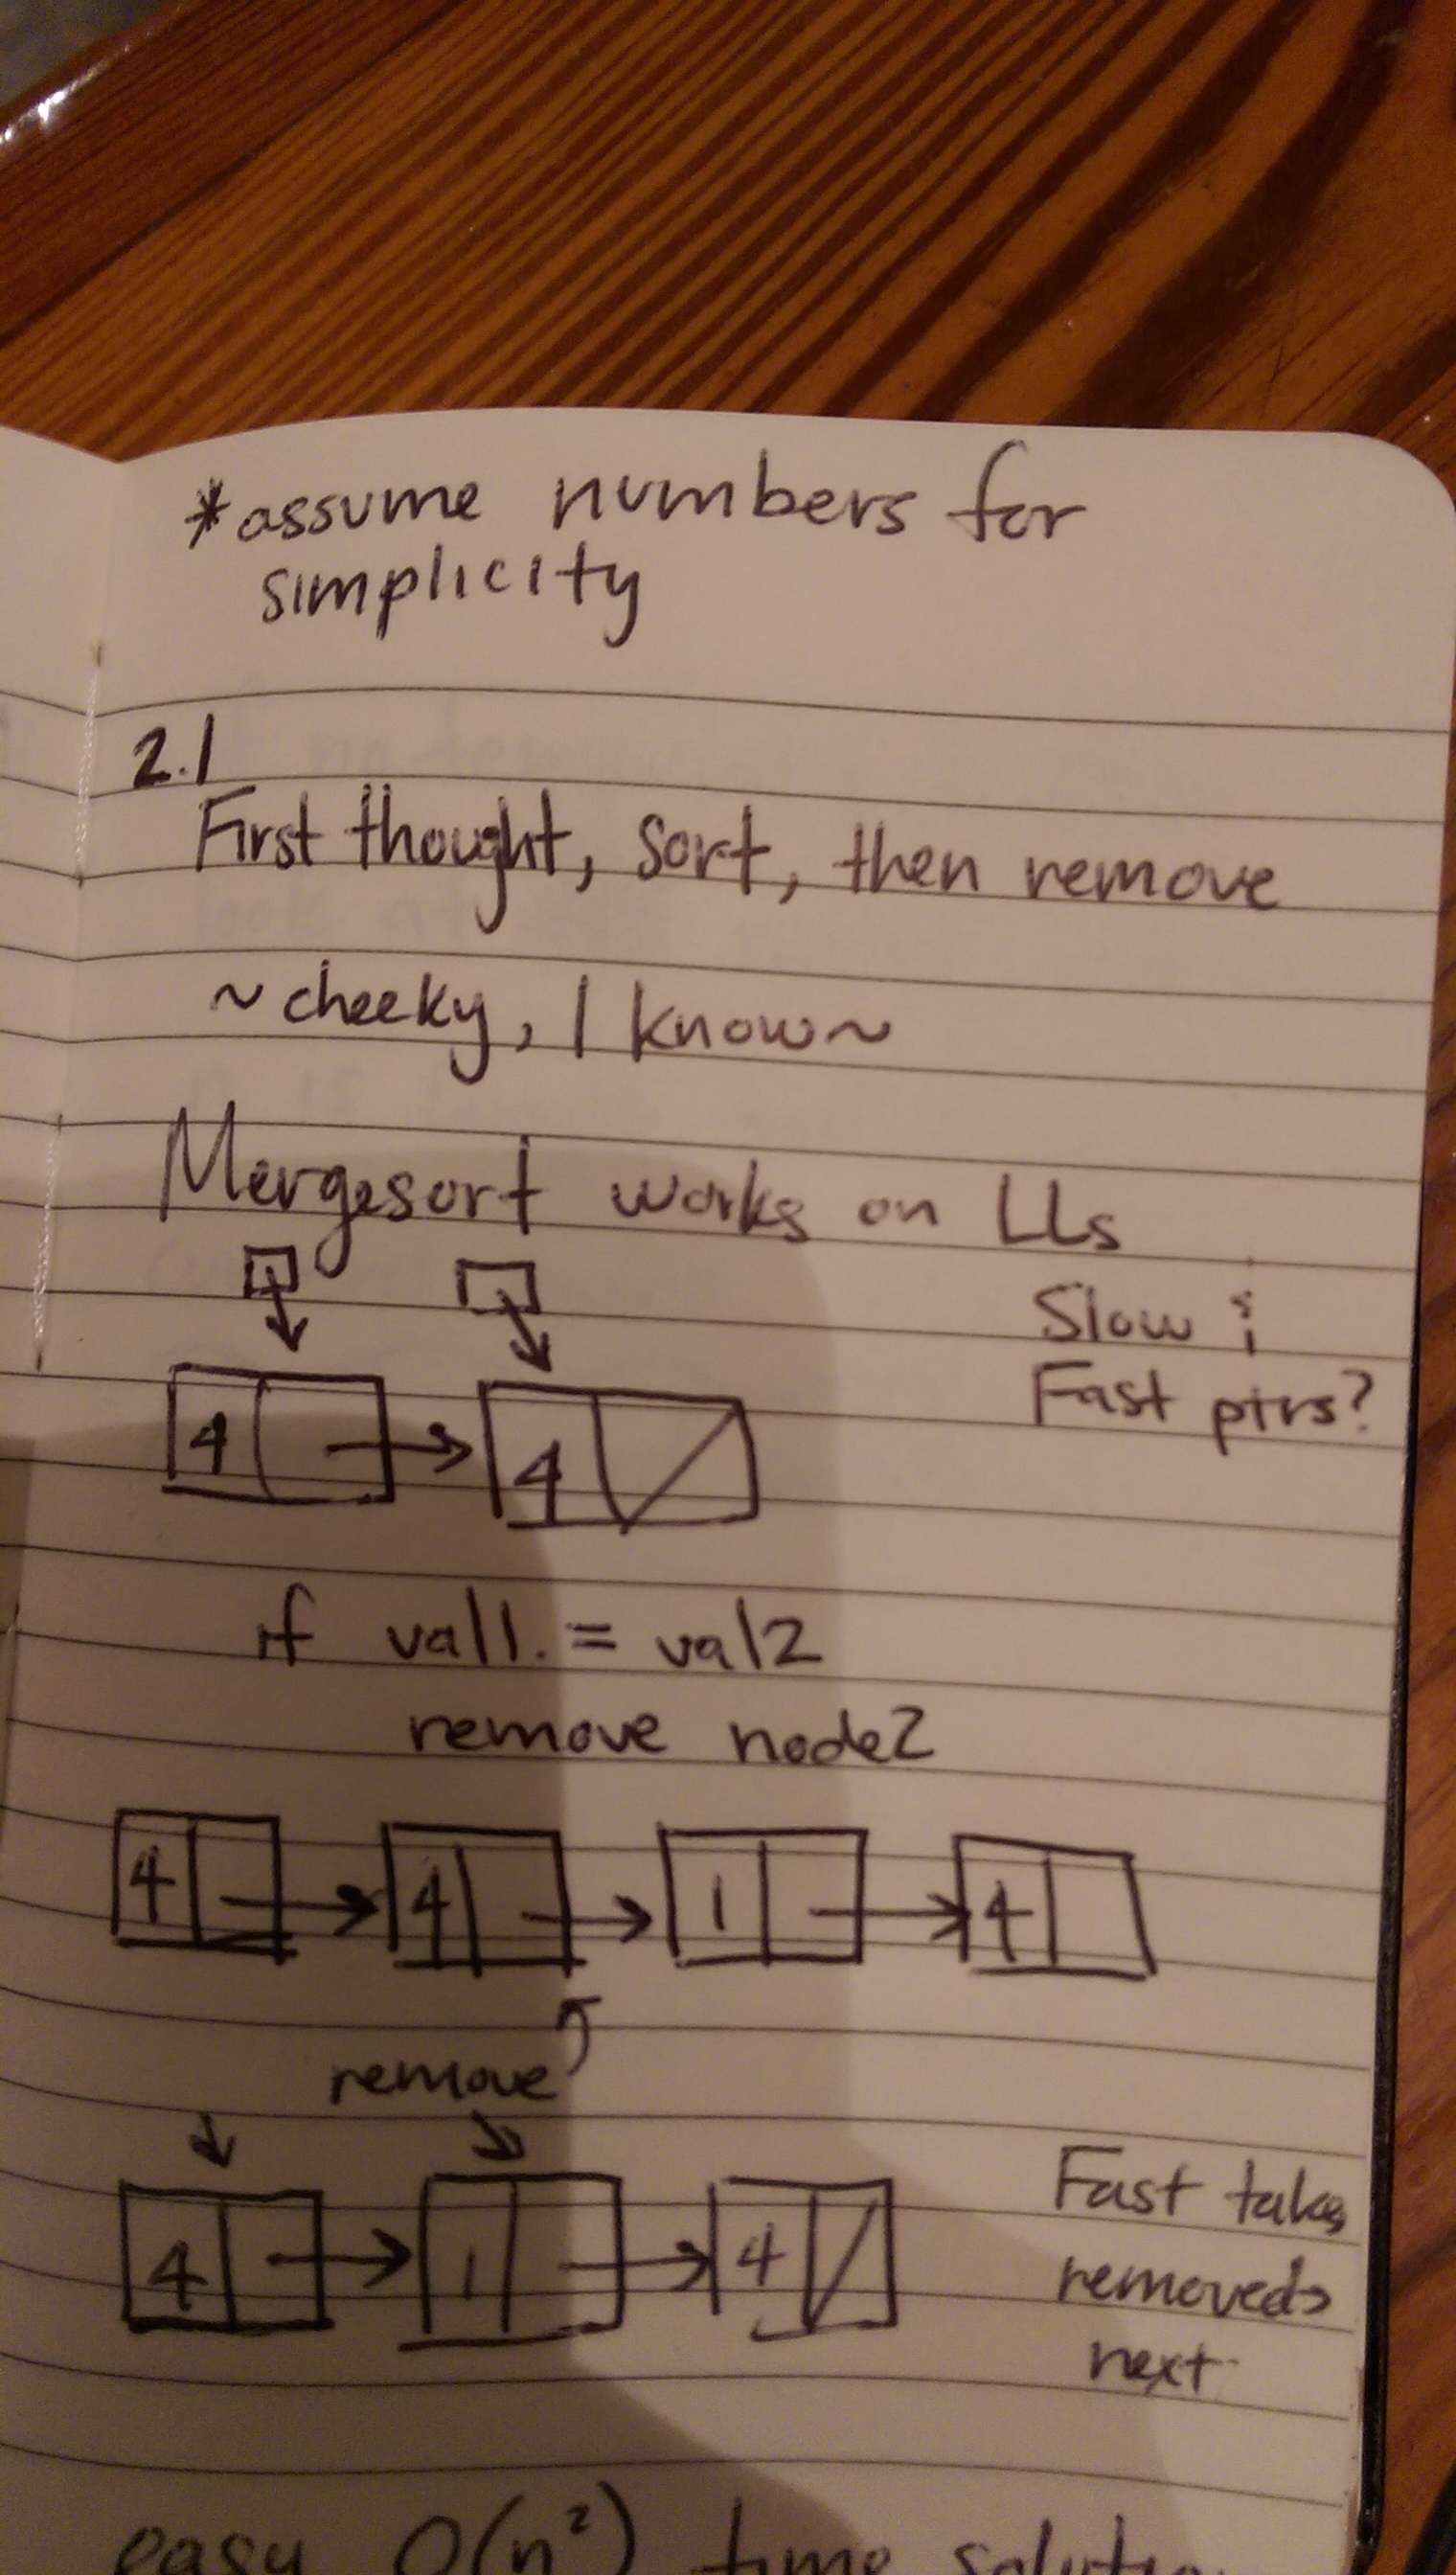 *assume numbers for
simplicity
2.1
First thought, sort, then remove
~cheeky, I know~
Mergesort works on LLs
Slow &
Fast ptrs?
4 4
if val1. = val2
remove node2
4 4 1 4
remove
4 1 4
Fast takes
removed>
next
easy O(n²) time